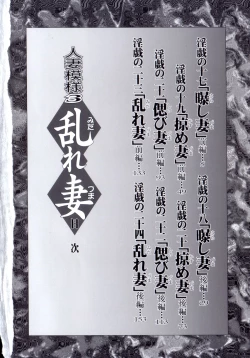 淫戯の十七「曝し妻」前編…5
淫戯の十八「曝し妻」後編…29
淫戯の十九「掠め妻」前編
淫戯の二十「掠め妻」後編
淫戯の二十一「偲び妻」前編
淫戯の二十二「偲び妻」後編
淫戯の二十三「乱れ妻」前編…133
淫戯の二十四「乱れ妻」後編…153
人妻模様3
乱れ妻
みだ
つま
目次